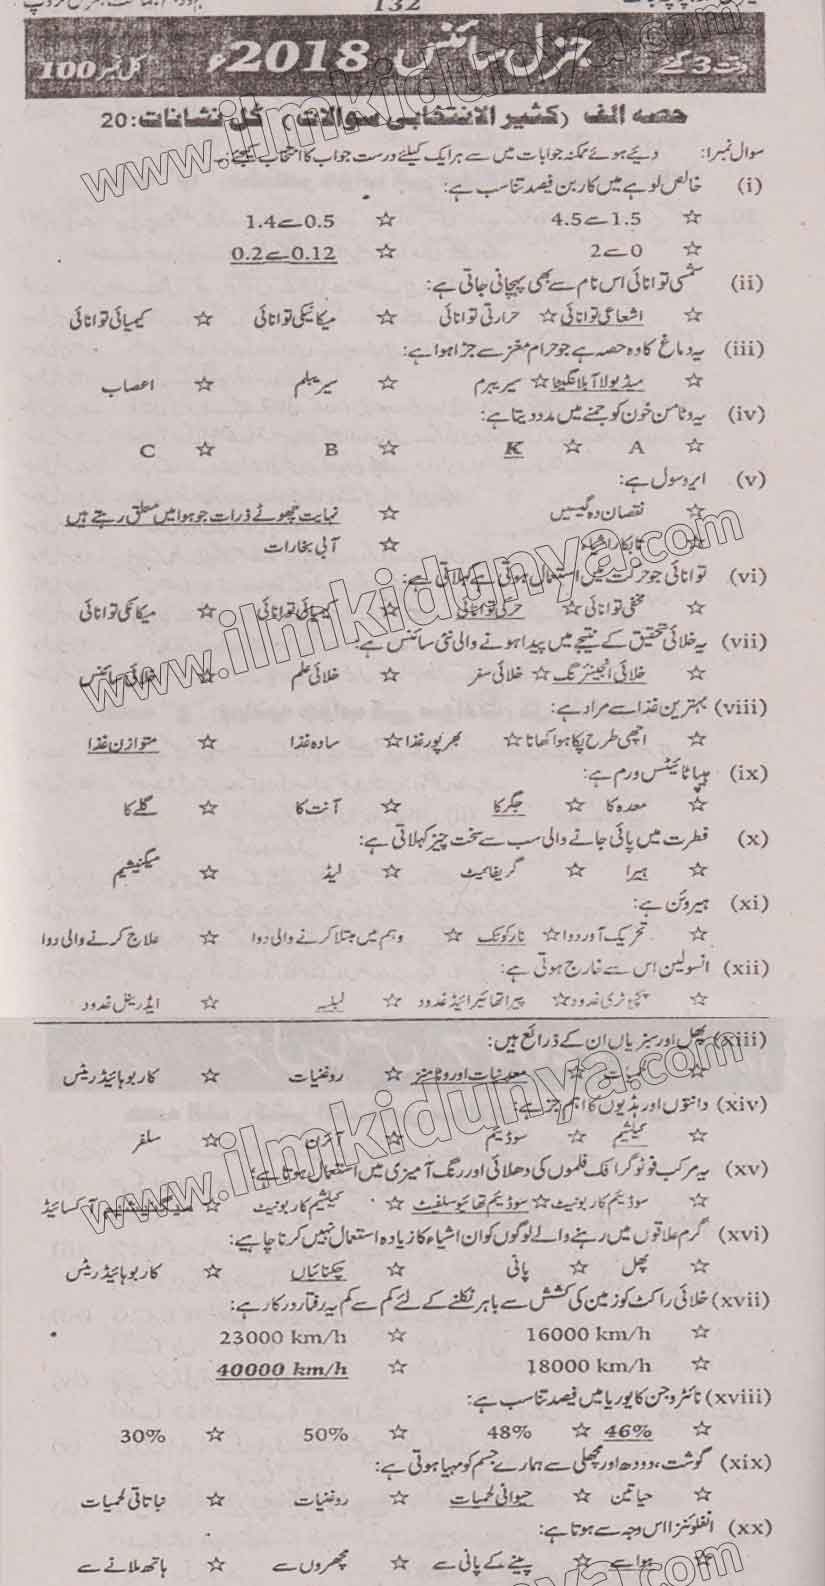 132
وقت 3 گھنٹے جنرل سائنس 2018ء کل نمبر 100
حصہ الف (کثیر الانتخابی سوالات) کل نشانات: 20
سوال نمبر 1: دیئے ہوئے ممکنہ جوابات میں سے ہر ایک کیلئے درست جواب کا انتخاب کیجئے:
(i) خالص لوہے میں کاربن فیصد تناسب ہے:
☆ 1.5 سے 4.5 ☆ 0.5 سے 1.4
☆ 0 سے 2 ☆ 0.12 سے 0.2
(ii) شمسی توانائی اس نام سے بھی پہچانی جاتی ہے:
☆ اشعاعی توانائی ☆ حرارتی توانائی ☆ میکانیکی توانائی ☆ کیمیائی توانائی
(iii) یہ دماغ کا وہ حصہ ہے جو حرام مغز سے جڑا ہوا ہے:
☆ میڈیولا آبلانگیٹا ☆ سیریبرم ☆ سیریبلم ☆ اعصاب
(iv) یہ وٹامن خون کو جمنے میں مدد دیتا ہے:
☆ A ☆ K ☆ B ☆ C
(v) ایروسول ہے:
☆ نقصان دہ گیسیں ☆ نہایت چھوٹے ذرات جو ہوا میں معلق رہتے ہیں
☆ تابکار اشیاء ☆ آبی بخارات
(vi) توانائی جو حرکت میں استعمال ہوتی ہے کہلاتی ہے:
☆ مخفی توانائی ☆ حرکی توانائی ☆ کیمیائی توانائی ☆ میکانکی توانائی
(vii) یہ خلائی تحقیق کے نتیجے میں پیدا ہونے والی نئی سائنس ہے:
☆ خلائی انجینئرنگ ☆ خلائی سفر ☆ خلائی علم ☆ خلائی سائنس
(viii) بہترین غذا سے مراد ہے:
☆ اچھی طرح پکا ہوا کھانا ☆ بھرپور غذا ☆ سادہ غذا ☆ متوازن غذا
(ix) ہپاٹائیٹس ورم ہے:
☆ معدہ کا ☆ جگر کا ☆ آنت کا ☆ گلے کا
(x) فطرت میں پائی جانے والی سب سے سخت چیز کہلاتی ہے:
☆ ہیرا ☆ گریفائیٹ ☆ لیڈ ☆ میگنیشیم
(xi) ہیروئن ہے:
☆ تحریک آور دوا ☆ نارکوٹک ☆ وہم میں مبتلا کرنے والی دوا ☆ علاج کرنے والی دوا
(xii) انسولین اس سے خارج ہوتی ہے:
☆ پچوٹری غدود ☆ پیراتھائیرائیڈ غدود ☆ لبلبہ ☆ ایڈرینل غدود
(xiii) پھل اور سبزیاں ان کے ذرائع ہیں:
☆ لحمیات ☆ معدنیات اور وٹامنز ☆ روغنیات ☆ کاربوہائیڈریٹس
(xiv) دانتوں اور ہڈیوں کا اہم جز ہے:
☆ کیلشیم ☆ سوڈیم ☆ آئرن ☆ سلفر
(xv) یہ مرکب فوٹوگرافک فلموں کی دھلائی اور رنگ آمیزی میں استعمال ہوتا ہے:
☆ سوڈیم کاربونیٹ ☆ سوڈیم تھائیوسلفیٹ ☆ کیلشیم کاربونیٹ ☆ میگنیشیم آکسائیڈ
(xvi) گرم علاقوں میں رہنے والے لوگوں کو ان اشیاء کا زیادہ استعمال نہیں کرنا چاہیے:
☆ پھل ☆ پانی ☆ چکنائیاں ☆ کاربوہائیڈریٹس
(xvii) خلائی راکٹ کو زمین کی کشش سے باہر نکلنے کے لئے کم سے کم یہ رفتار درکار ہے:
☆ 16000 km/h ☆ 23000 km/h
☆ 18000 km/h ☆ 40000 km/h
(xviii) نائٹروجن کا یوریا میں فیصد تناسب ہے:
☆ 46% ☆ 48% ☆ 50% ☆ 30%
(xix) گوشت، دودھ اور مچھلی سے ہمارے جسم کو مہیا ہوتی ہے:
☆ حیاتین ☆ حیوانی لحمیات ☆ روغنیات ☆ نباتاتی لحمیات
(xx) انفلوئنزا اس وجہ سے ہوتا ہے:
☆ ہوا سے ☆ پینے کے پانی سے ☆ مچھروں سے ☆ ہاتھ ملانے سے
www.ilmkidunya.com
www.ilmkidunya.com
www.ilmkidunya.com